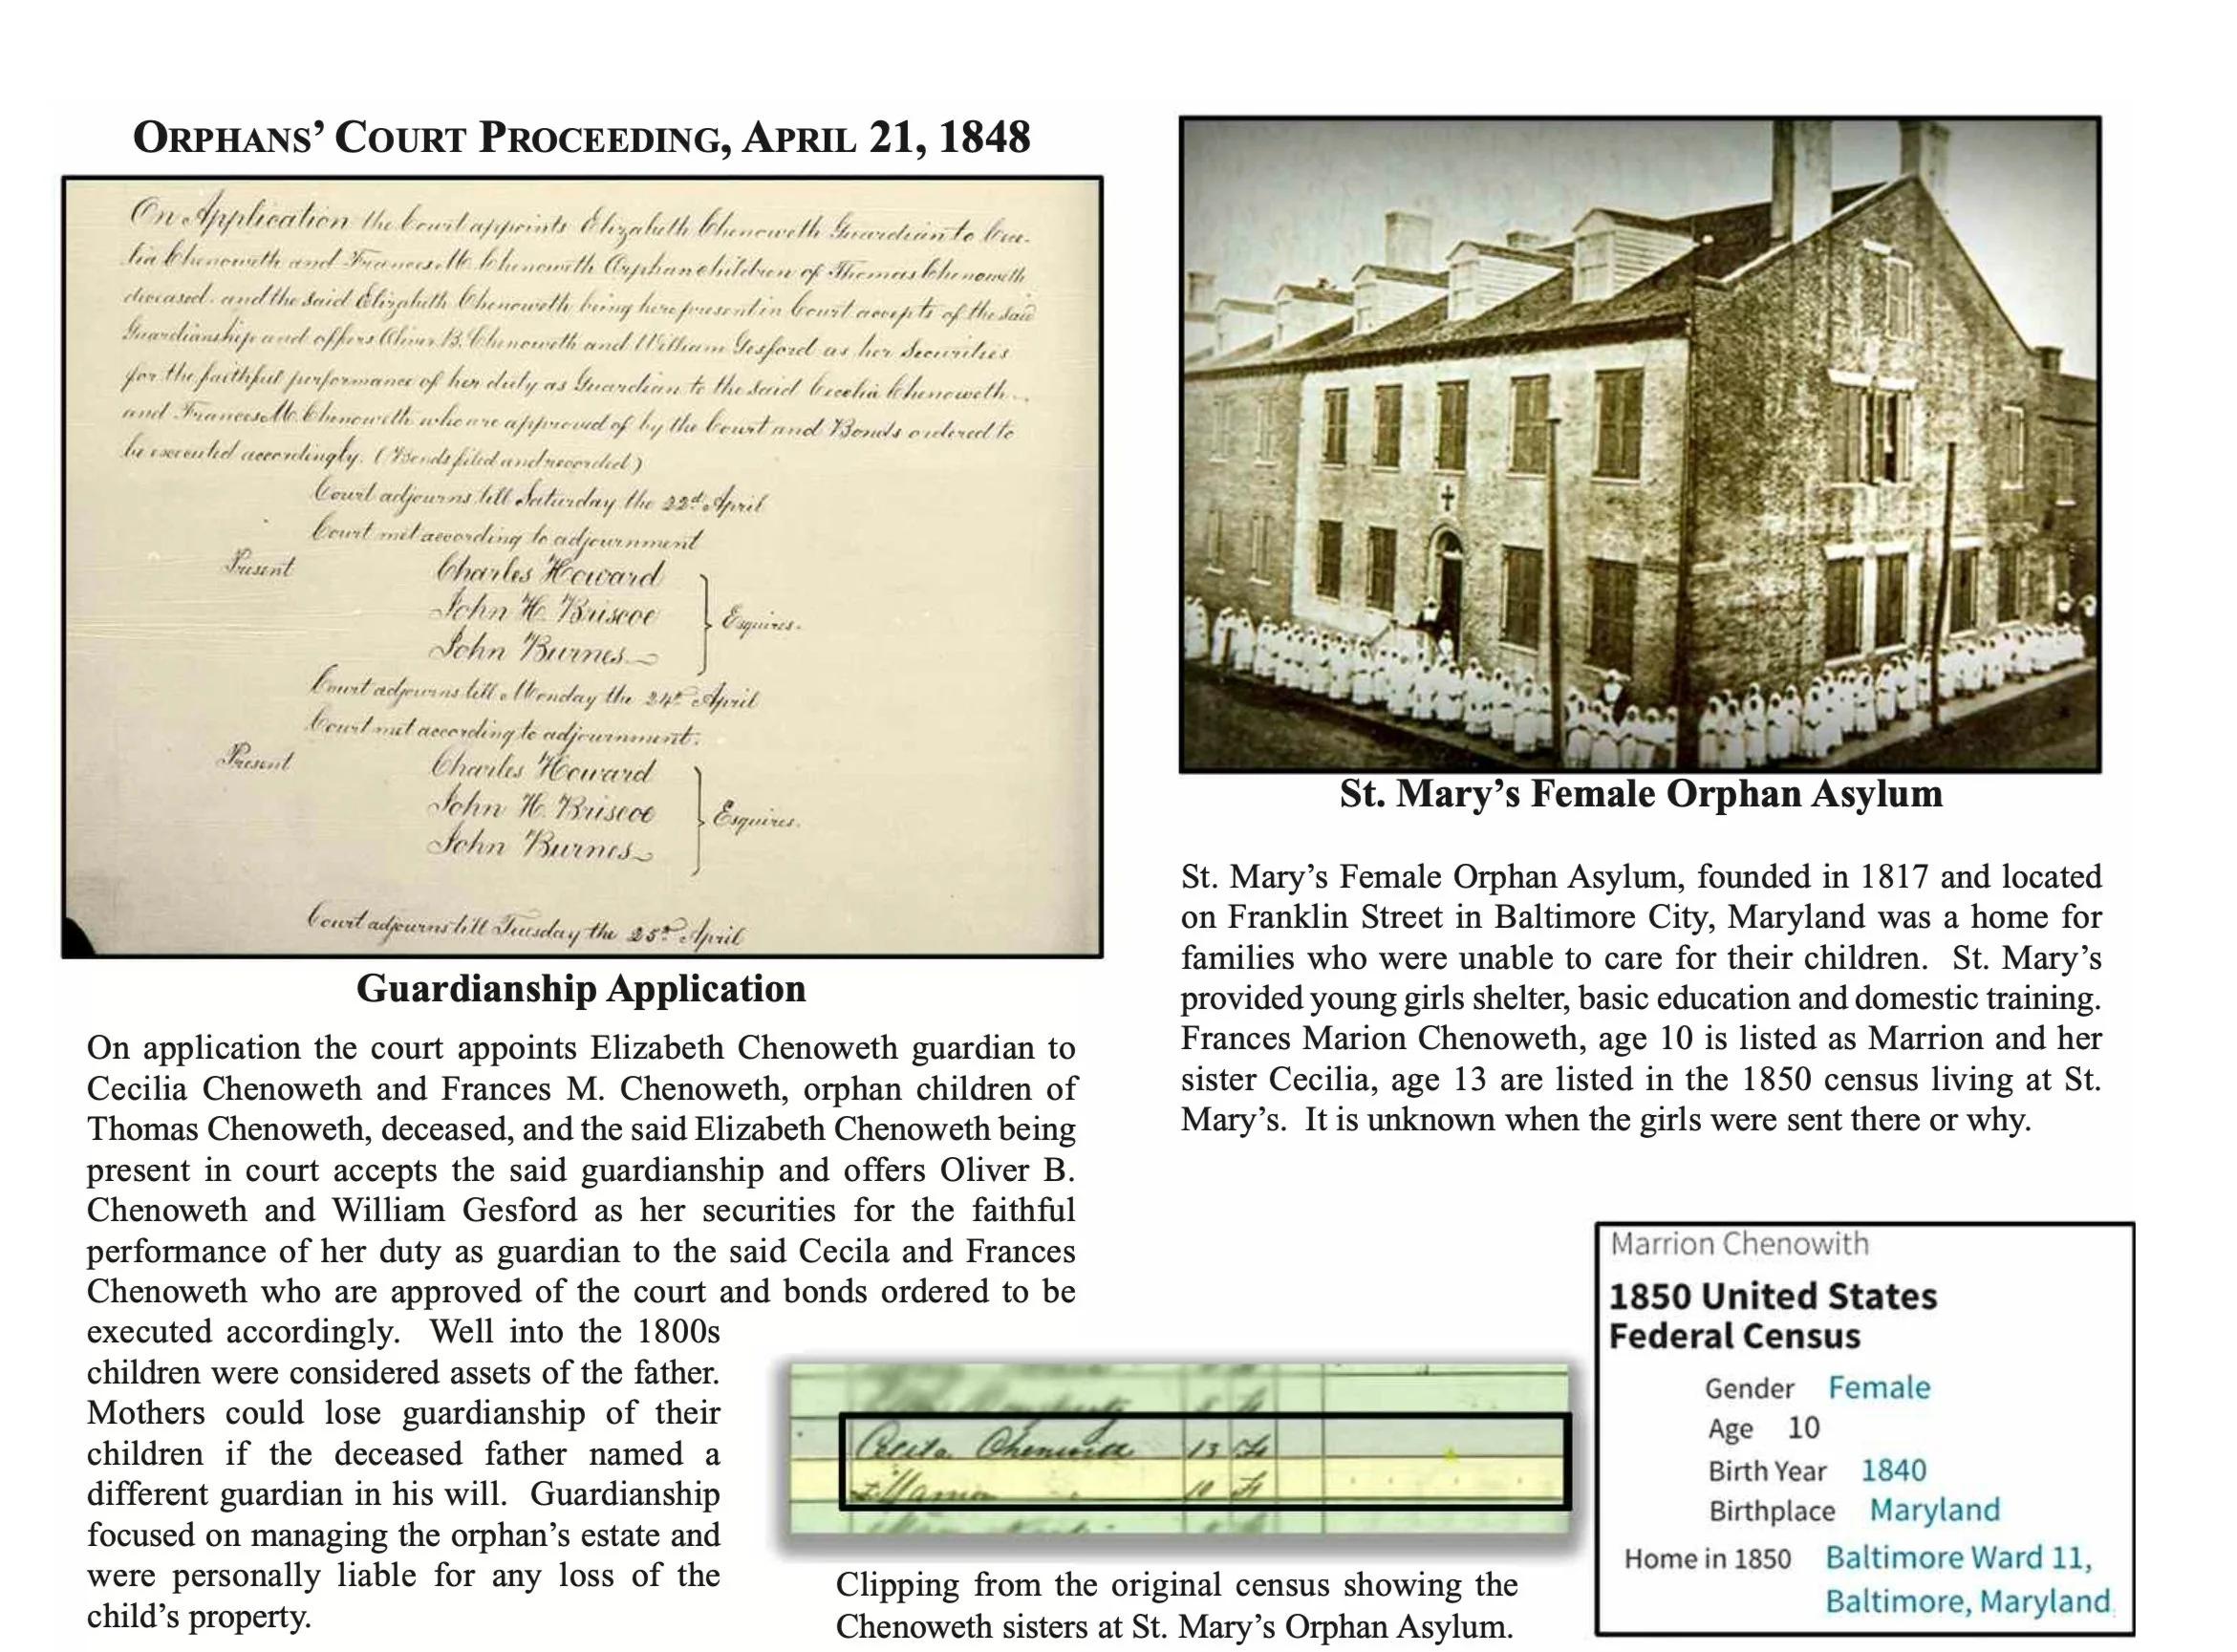 ORPHANS' COURT PROCEEDING, APRIL 21, 1848
On Application the Court appoints Elizabeth Chenoweth Guardian to Cece-
lia Chenoweth and Frances M. Chenoweth Orphan children of Thomas Chenoweth
deceased. and the said Elizabeth Chenoweth being here present in Court accepts of the said
Guardianship and offers Oliver B. Chenoweth and William Gesford as her Securities
for the faithful performance of her duty as Guardian to the said Cecelia Chenoweth
and Frances M. Chenoweth who are approved of by the Court and Bonds ordered to
be executed accordingly. (Bonds filed and recorded)
Court adjourns till Saturday the 22d April
Court met according to adjournment
Present Charles Howard
John H. Briscoe Esquires.
John Burnes
Court adjourns till Monday the 24th April
Court met according to adjournment.
Present Charles Howard
John H. Briscoe Esquires.
John Burnes
Court adjourns till Tuesday the 25th April
Guardianship Application
On application the court appoints Elizabeth Chenoweth guardian to
Cecilia Chenoweth and Frances M. Chenoweth, orphan children of
Thomas Chenoweth, deceased, and the said Elizabeth Chenoweth being
present in court accepts the said guardianship and offers Oliver B.
Chenoweth and William Gesford as her securities for the faithful
performance of her duty as guardian to the said Cecila and Frances
Chenoweth who are approved of the court and bonds ordered to be
executed accordingly. Well into the 1800s
children were considered assets of the father.
Mothers could lose guardianship of their
children if the deceased father named a
different guardian in his will. Guardianship
focused on managing the orphan's estate and
were personally liable for any loss of the
child's property.
St. Mary's Female Orphan Asylum
St. Mary's Female Orphan Asylum, founded in 1817 and located
on Franklin Street in Baltimore City, Maryland was a home for
families who were unable to care for their children. St. Mary's
provided young girls shelter, basic education and domestic training.
Frances Marion Chenoweth, age 10 is listed as Marrion and her
sister Cecilia, age 13 are listed in the 1850 census living at St.
Mary's. It is unknown when the girls were sent there or why.
13
10
Clipping from the original census showing the
Chenoweth sisters at St. Mary's Orphan Asylum.
Marrion Chenowith
1850 United States
Federal Census
Gender Female
Age 10
Birth Year 1840
Birthplace Maryland
Home in 1850 Baltimore Ward 11,
Baltimore, Maryland